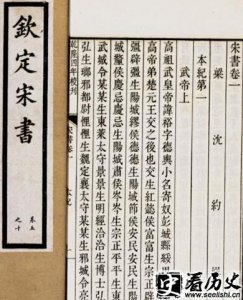 欽定宋書
卷五
之十
宋書卷一
梁沈約
本紀第一
武帝上
高祖武皇帝諱裕字德輿小名寄奴彭城縣綏
高帝弟楚元王交之後也交生紅懿侯富富生宗正辟
彊辟彊生陽城繆侯德德生陽城節侯安民安民生陽
城釐侯慶忌慶忌生陽城肅侯岑岑生宗正平平生東
武城令某某生東萊太守景景生明經洽洽生博士弘
弘生瑯邪都尉悝悝生魏定襄太守某某生邪城令亮
乾隆四年校刊
宋書卷一
本紀
看历史
www.seelishi.cn